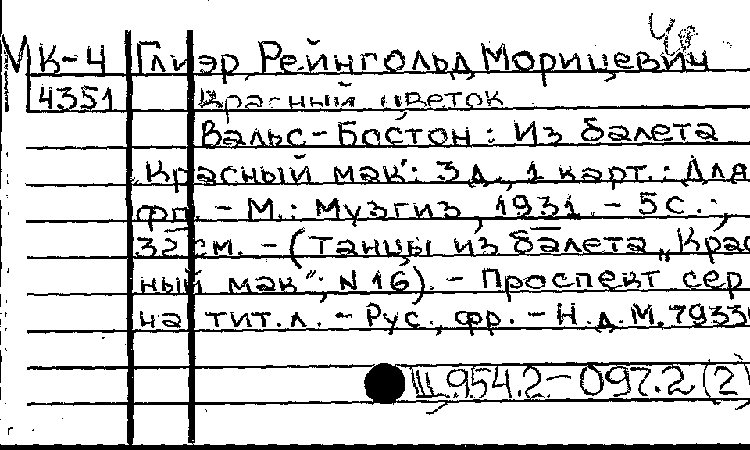 МК-4 Глиэр, Рейнгольд Морицевич
4351 Красный цветок
Вальс-Бостон: Из балета
„Красный мак": 3 д., 1 карт.: Для
фп. - М.: Музгиз, 1931. - 5 с.;
32 см. - (Танцы из балета „Крас
ный мак"; N 16). - Проспект сер
на тит. л. - Рус., фр. - Н.д.М.7933
Ш.954.2-097.2(2)